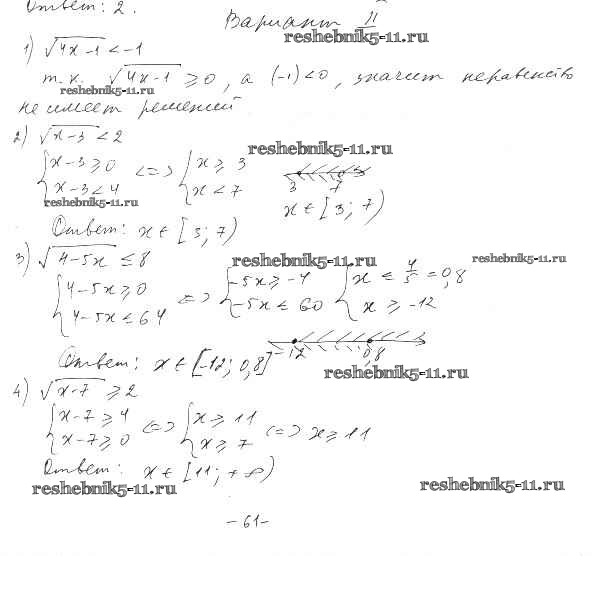 Ответ: 2.
Вариант II
reshebnik5-11.ru
1) √(4x-1) < -1
т.к. √(4x-1) ≥ 0, а (-1) < 0, значит неравенство
reshebnik5-11.ru
не имеет решений.
2) √(x-3) < 2
reshebnik5-11.ru
{x-3 ≥ 0 <=> {x ≥ 3
{x-3 < 4 {x < 7 3 7
reshebnik5-11.ru
x ∈ [3; 7)
Ответ: x ∈ [3; 7)
3) √(4-5x) ≤ 8
reshebnik5-11.ru reshebnik5-11.ru
{4-5x ≥ 0 <=> {-5x ≥ -4 {x ≤ 4/5 = 0,8
{4-5x ≤ 64 {-5x ≤ 60 {x ≥ -12
-12 0,8
Ответ: x ∈ [-12; 0,8]
reshebnik5-11.ru
4) √(x-7) ≥ 2
{x-7 ≥ 4 <=> {x ≥ 11 <=> x ≥ 11
{x-7 ≥ 0 {x ≥ 7
Ответ: x ∈ [11; +∞)
reshebnik5-11.ru reshebnik5-11.ru
-61-